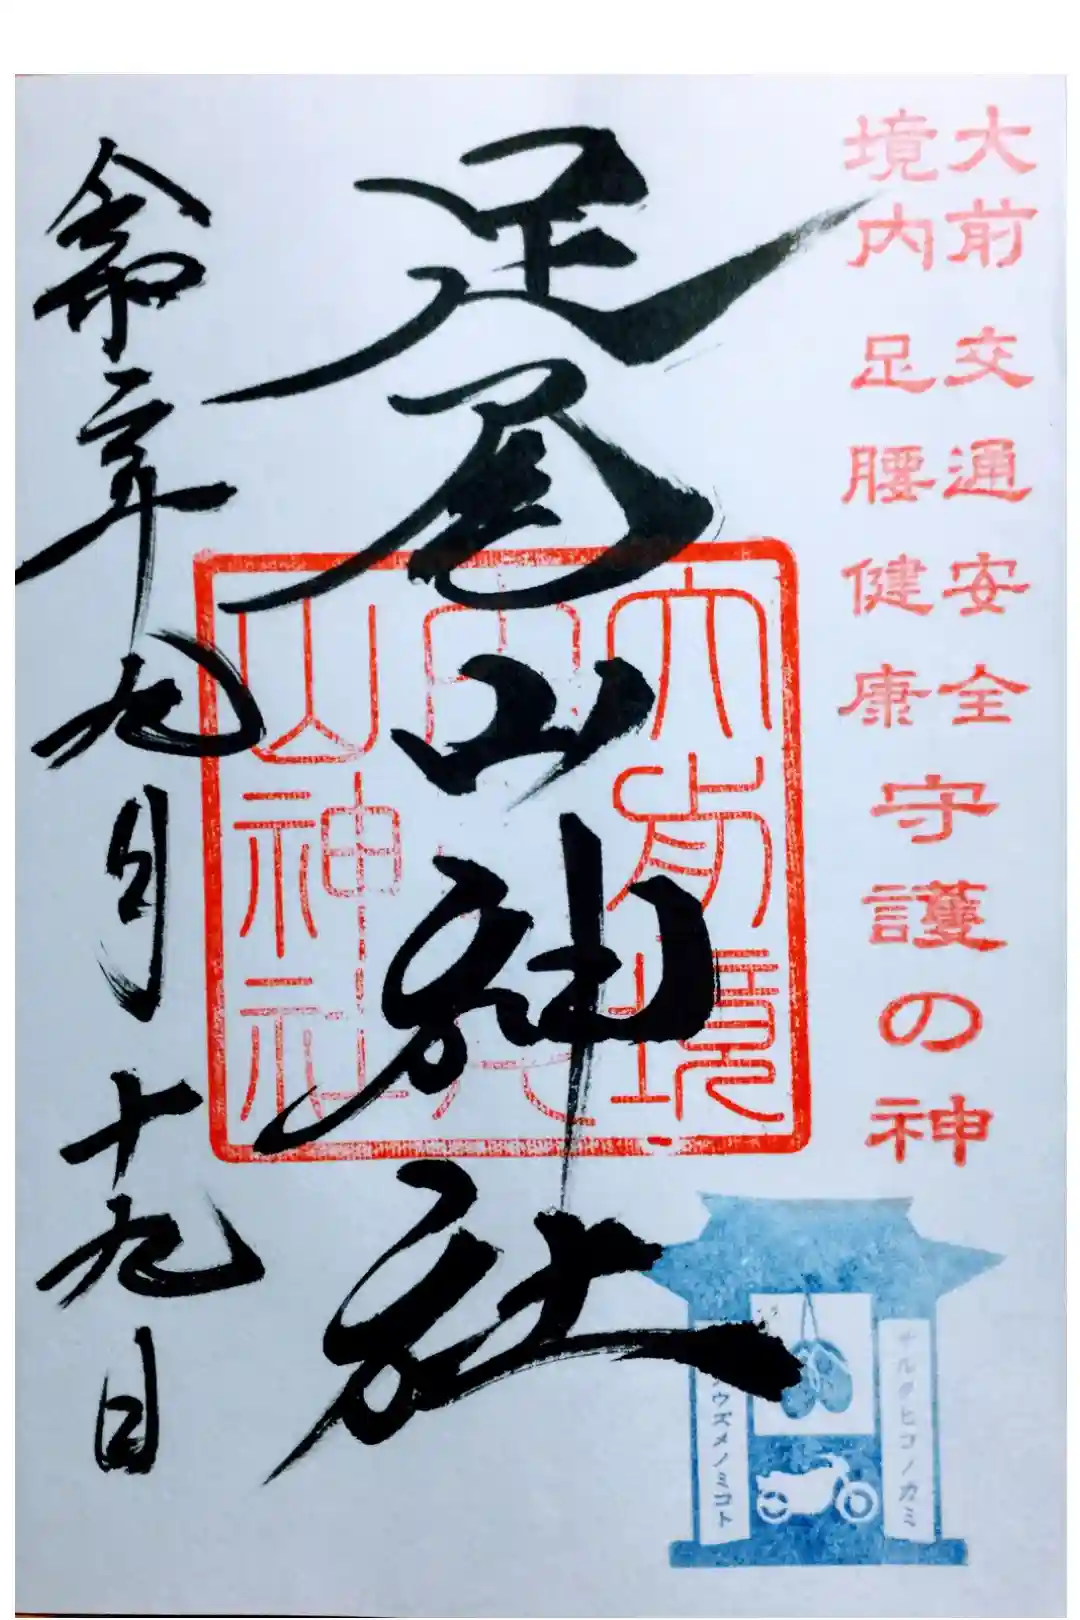 大前 交通安全
境内 足腰健康
守護の神
足尾山神社
大前境
山神社
令和二年九月十九日
サルタヒコノカミ
ウズメノミコト